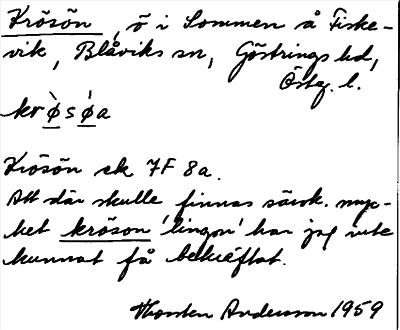 Krösön, ö i Sommen å Fiske-
vik, Blåviks sn, Göstrings hd,
Östg. l.
krø̀sǿa
Krösön ek 7F 8a.
Att där skulle finnas särsk. myc-
ket kröson 'lingon' har jag inte
kunnat få bekräftat.
Thorsten Andersson 1959